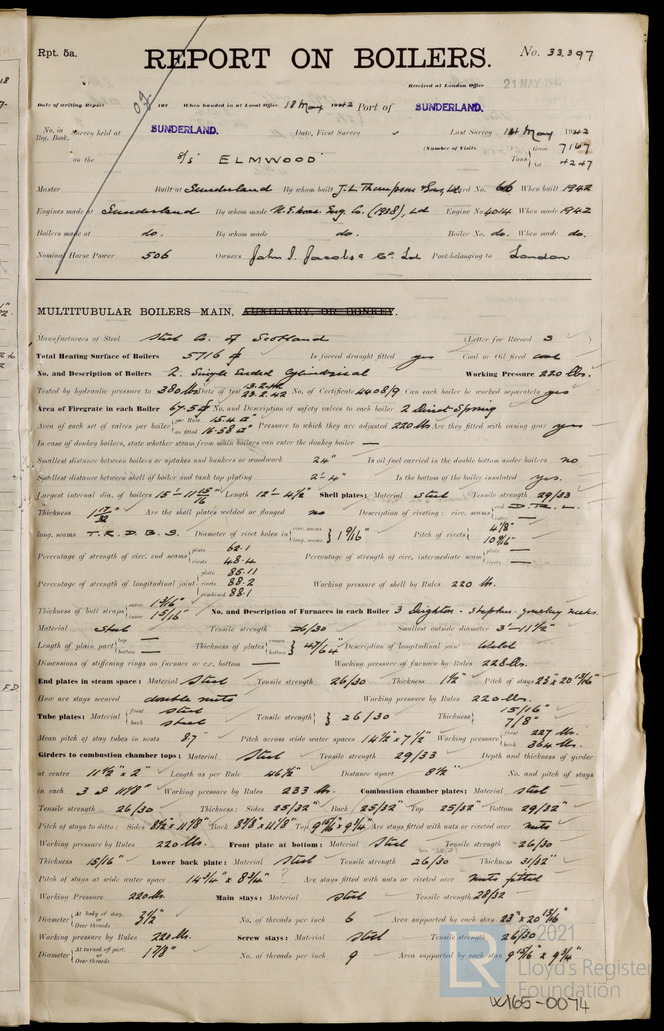 Rpt. 5a.
REPORT ON BOILERS.
No. 33,397
Received at London Office 21 MAY 1942
Date of writing Report 192 When handed in at Local Office 18 May 1942 Port of SUNDERLAND.
No. in Reg. Book. Survey held at SUNDERLAND. Date, First Survey Last Survey 14 May 1942
(Number of Visits
on the S/S ELMWOOD Tons { Gross 7167 Net 4247
Master Built at Sunderland By whom built J.L. Thompson & Sons, Ld Yard No. When built 1942
Engines made at Sunderland By whom made N.E. Mar. Eng. Co. (1938), Ld Engine No. 4014 When made 1942
Boilers made at do. By whom made do. Boiler No. do. When made do.
Nominal Horse Power 506 Owners John I. Jacobs & Co. Ld Port belonging to London
MULTITUBULAR BOILERS—MAIN, AUXILIARY, OR DONKEY.
Manufacturers of Steel Steel Co. of Scotland (Letter for Record S
Total Heating Surface of Boilers 5716 Is forced draught fitted yes Coal or Oil fired coal
No. and Description of Boilers 2. Single Ended Cylindrical Working Pressure 220 lbs.
Tested by hydraulic pressure to 380 lbs Date of test 13.2.42 23.2.42 No. of Certificate 4408/9 Can each boiler be worked separately yes
Area of Firegrate in each Boiler 67.5 No. and Description of safety valves to each boiler 2 Direct Spring
Area of each set of valves per boiler { per Rule 15.42" as fitted 16.58" Pressure to which they are adjusted 220 lbs Are they fitted with easing gear yes
In case of donkey boilers, state whether steam from main boilers can enter the donkey boiler —
Smallest distance between boilers or uptakes and bunkers or woodwork 24" Is oil fuel carried in the double bottom under boilers no
Smallest distance between shell of boiler and tank top plating 2'-4" Is the bottom of the boiler insulated yes.
Largest internal dia. of boilers 15'-11 15/16" Length 12'-4½" Shell plates: Material Steel Tensile strength 29/33
Thickness 1 17/32" Are the shell plates welded or flanged no Description of riveting: circ. seams { end D.R.L. inter. —
long. seams T.R.D.B.S. Diameter of rivet holes in { circ. seams long. seams } 1 9/16" Pitch of rivets { 4 1/8" 10 9/16"
Percentage of strength of circ. end seams { plate 62.1 rivets 48.4 Percentage of strength of circ. intermediate seam { plate — rivets —
Percentage of strength of longitudinal joint { plate 85.11 rivets 88.2 combined 88.1 Working pressure of shell by Rules 220 lbs.
Thickness of butt straps { outer 1 3/16" inner 1 5/16" No. and Description of Furnaces in each Boiler 3 Deighton - Stephen Gourlay necks.
Material Steel Tensile strength 26/30 Smallest outside diameter 3'-11½"
Length of plain part { top — bottom — Thickness of plates { crown bottom } 47/64" Description of longitudinal joint Weld
Dimensions of stiffening rings on furnace or c.c. bottom — Working pressure of furnace by Rules 228 lbs.
End plates in steam space: Material Steel Tensile strength 26/30 Thickness 1½" Pitch of stays 23" x 20 13/16"
How are stays secured double nuts Working pressure by Rules 220 lbs.
Tube plates: Material { front steel back steel Tensile strength } 26/30 Thickness { 15/16" 7/8"
Mean pitch of stay tubes in nests 8.7" Pitch across wide water spaces 14½" x 7½" Working pressure { front 227 lbs. back 364 lbs.
Girders to combustion chamber tops: Material Steel Tensile strength 29/33 Depth and thickness of girder
at centre 11½" x 2" Length as per Rule 46½" Distance apart 8½" No. and pitch of stays
in each 3 @ 11 1/8" Working pressure by Rules 233 lbs. Combustion chamber plates: Material steel
Tensile strength 26/30 Thickness: Sides 25/32" Back 25/32" Top 25/32" Bottom 29/32"
Pitch of stays to ditto: Sides 8½" x 11 1/8" Back 8 7/8" x 11 1/8" Top 9 15/16" x 9¾" Are stays fitted with nuts or riveted over nuts
Working pressure by Rules 220 lbs. Front plate at bottom: Material Steel Tensile strength 26/30
Thickness 15/16" Lower back plate: Material Steel Tensile strength 26/30 Thickness 31/32"
Pitch of stays at wide water space 14¾" x 8¾" Are stays fitted with nuts or riveted over nuts fitted
Working Pressure 220 lbs Main stays: Material Steel Tensile strength 28/32
Diameter { At body of stay, or Over threads 3½" No. of threads per inch 6 Area supported by each stay 23" x 20 13/16"
Working pressure by Rules 220 lbs. Screw stays: Material Steel Tensile strength 26/30
Diameter { At turned off part, or Over threads 1 7/8" No. of threads per inch 9 Area supported by each stay 9 15/16" x 9¾"
© 2021
LR Lloyd's Register Foundation
W165-0074